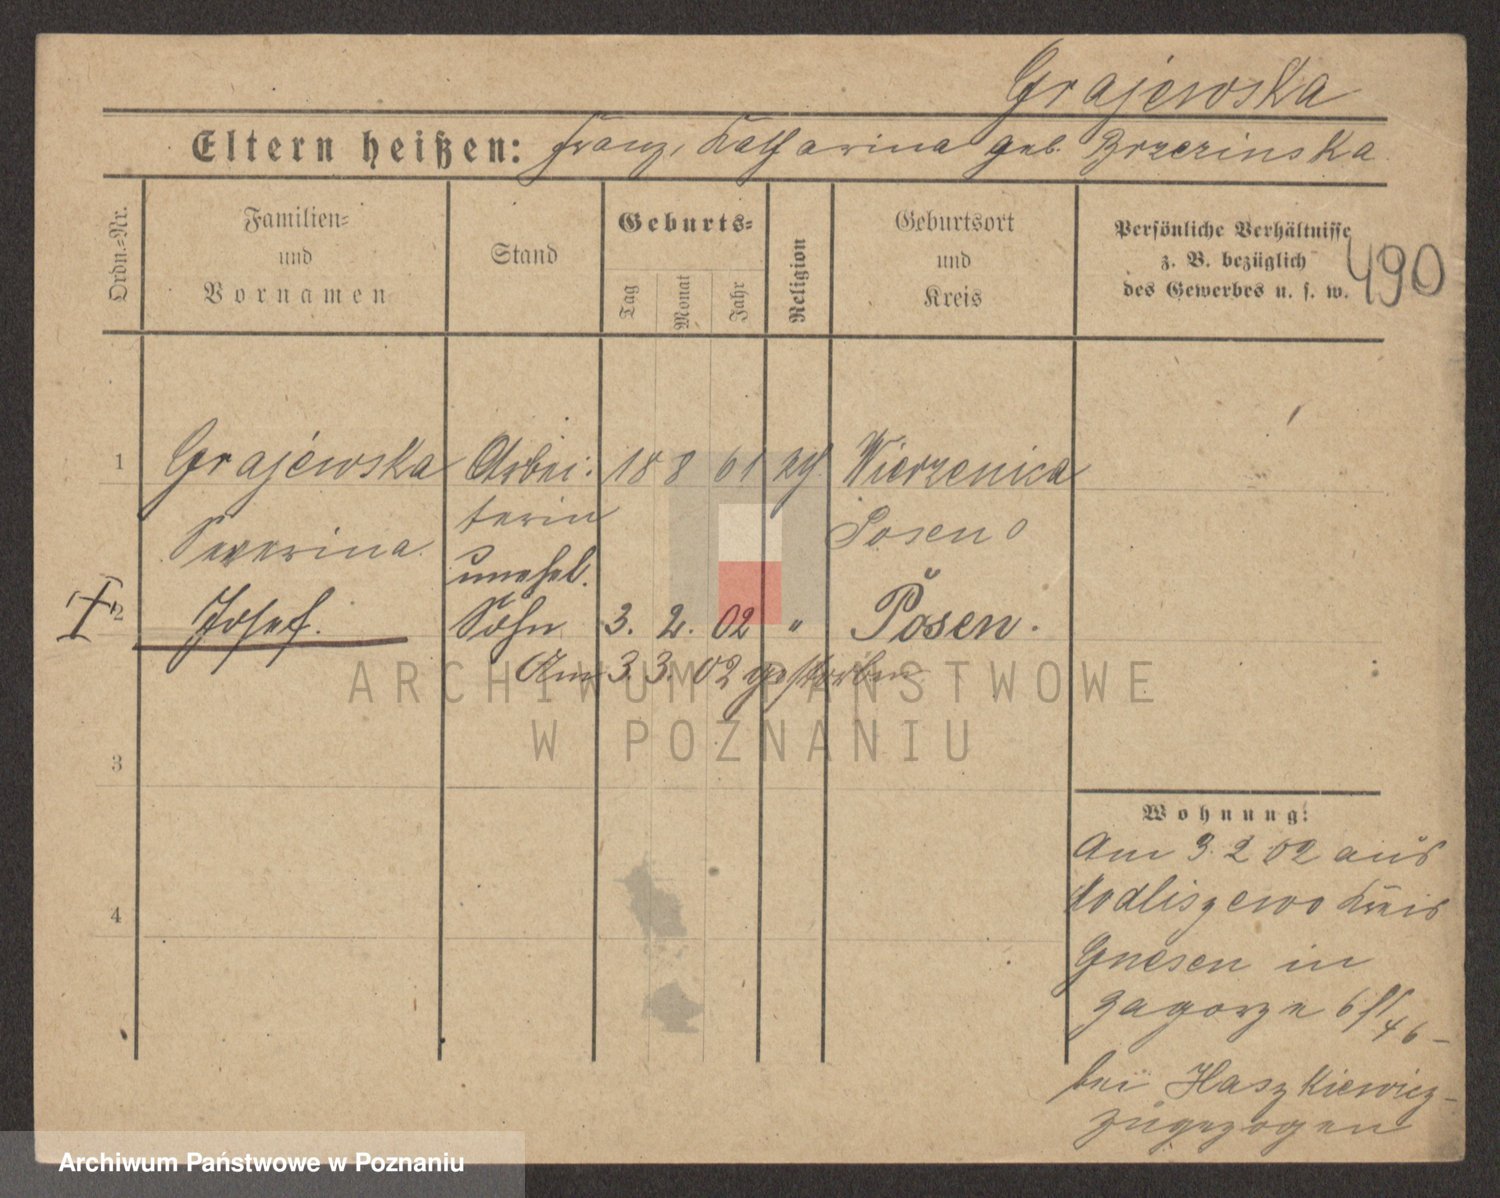 Grajewska
Eltern heißen: Franz, Katharina geb. Brzezinska
Ordn.=Nr.
Familien=
und
Vornamen
Stand
Geburts=
Tag
Monat
Jahr
Religion
Geburtsort
und
Kreis
Persönliche Verhältnisse
z. B. bezüglich
des Gewerbes u. s. w.
490
1 Grajewska Arbei: 18 8 61 Wierzenica
Severina terin Posen O
unehel.
2 Josef. Sohn 3. 2. 02 " Posen.
Am 3. 3. 02 gestorben
3
4
Wohnung:
Am 3. 2 02 aus
Modliszewo Kreis
Gnesen in
Zagorze 6
bei Haszkiewicz
zugezogen
ARCHIWUM PAŃSTWOWE
W POZNANIU
Archiwum Państwowe w Poznaniu